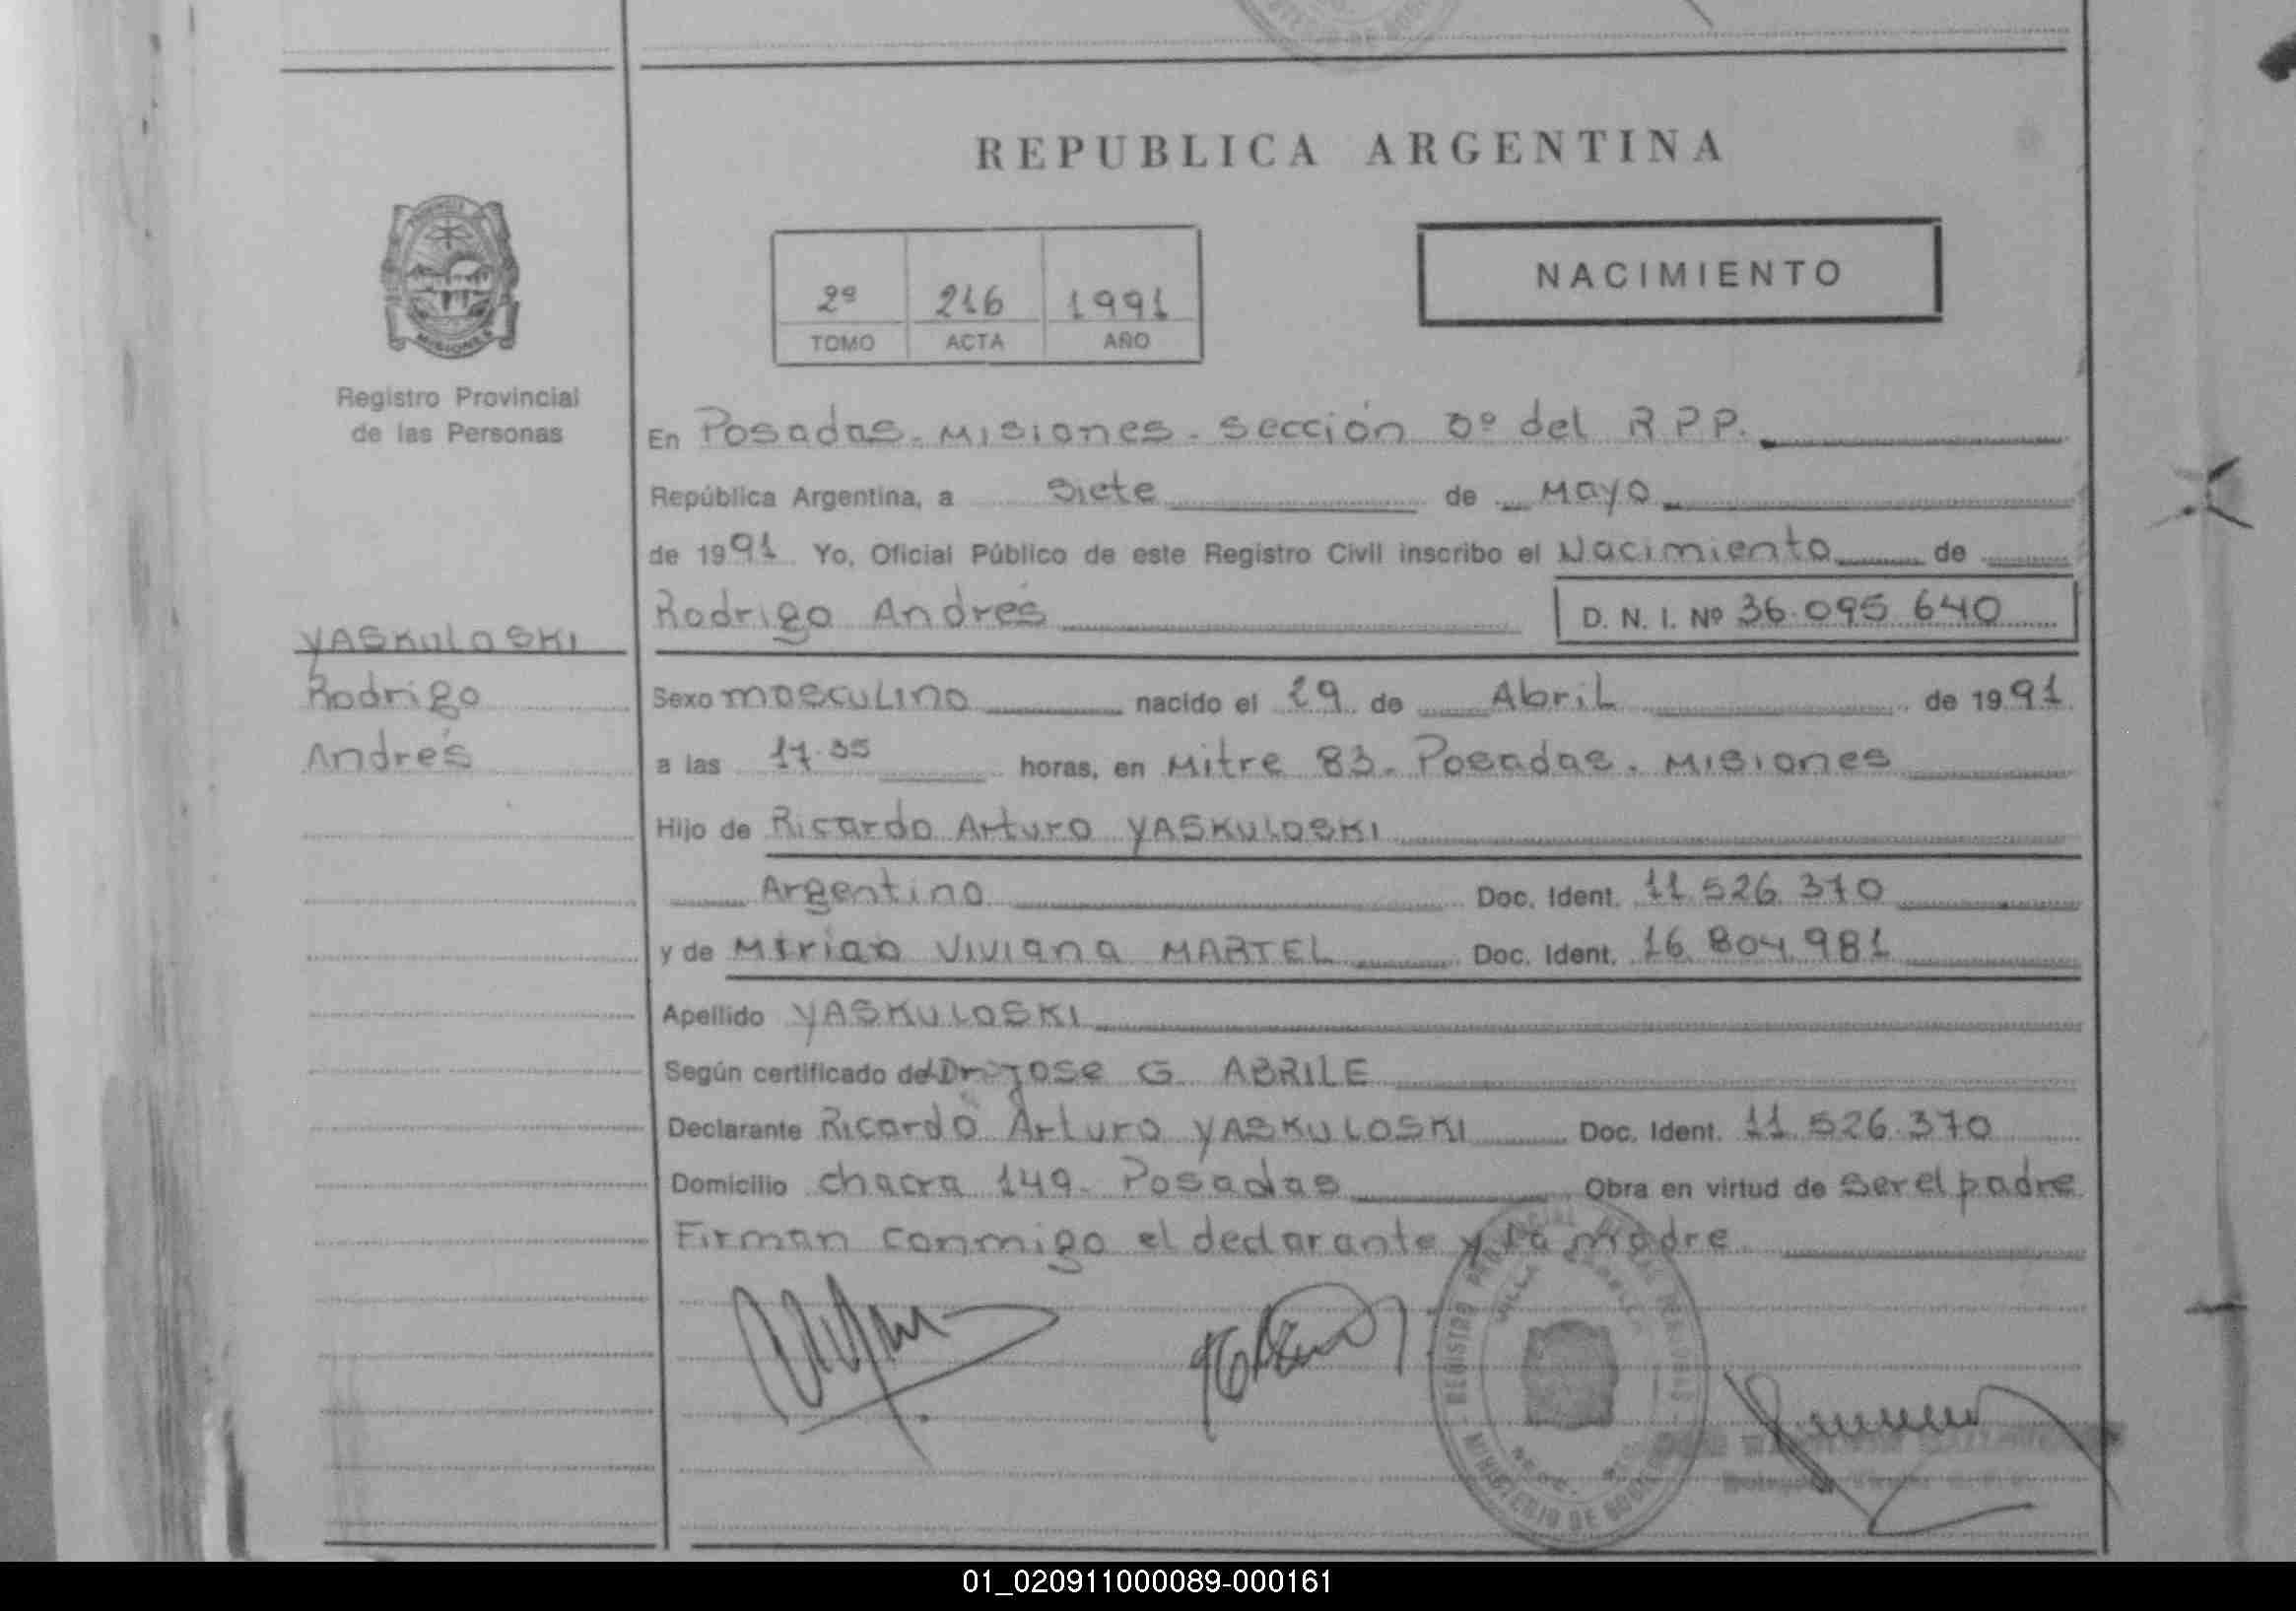 REPUBLICA ARGENTINA
2º 216 1991
TOMO ACTA AÑO
NACIMIENTO
MISIONES
Registro Provincial
de las Personas
YASKULOSKI
Rodrigo
Andrés
En Posadas. Misiones. sección 8º del R.P.P.
República Argentina, a Siete de Mayo
de 1991 Yo, Oficial Público de este Registro Civil inscribo el Nacimiento de
Rodrigo Andrés D. N. I. Nº 36.095.640
Sexo masculino nacido el 29 de Abril de 1991
a las 17.35 horas, en Mitre 83. Posadas. Misiones
Hijo de Ricardo Arturo YASKULOSKI
Argentino Doc. Ident. 11.526.370
y de Mirian Viviana MARTEL Doc. Ident. 16.804.981
Apellido YASKULOSKI
Según certificado del Dr. JOSE G. ABRILE
Declarante Ricardo Arturo YASKULOSKI Doc. Ident. 11.526.370
Domicilio chacra 149. Posadas Obra en virtud de ser el padre
Firman conmigo el declarante y la madre
REGISTRO PROVINCIAL DE LAS PERSONAS
MINISTERIO DE GOBIERNO
01_020911000089-000161